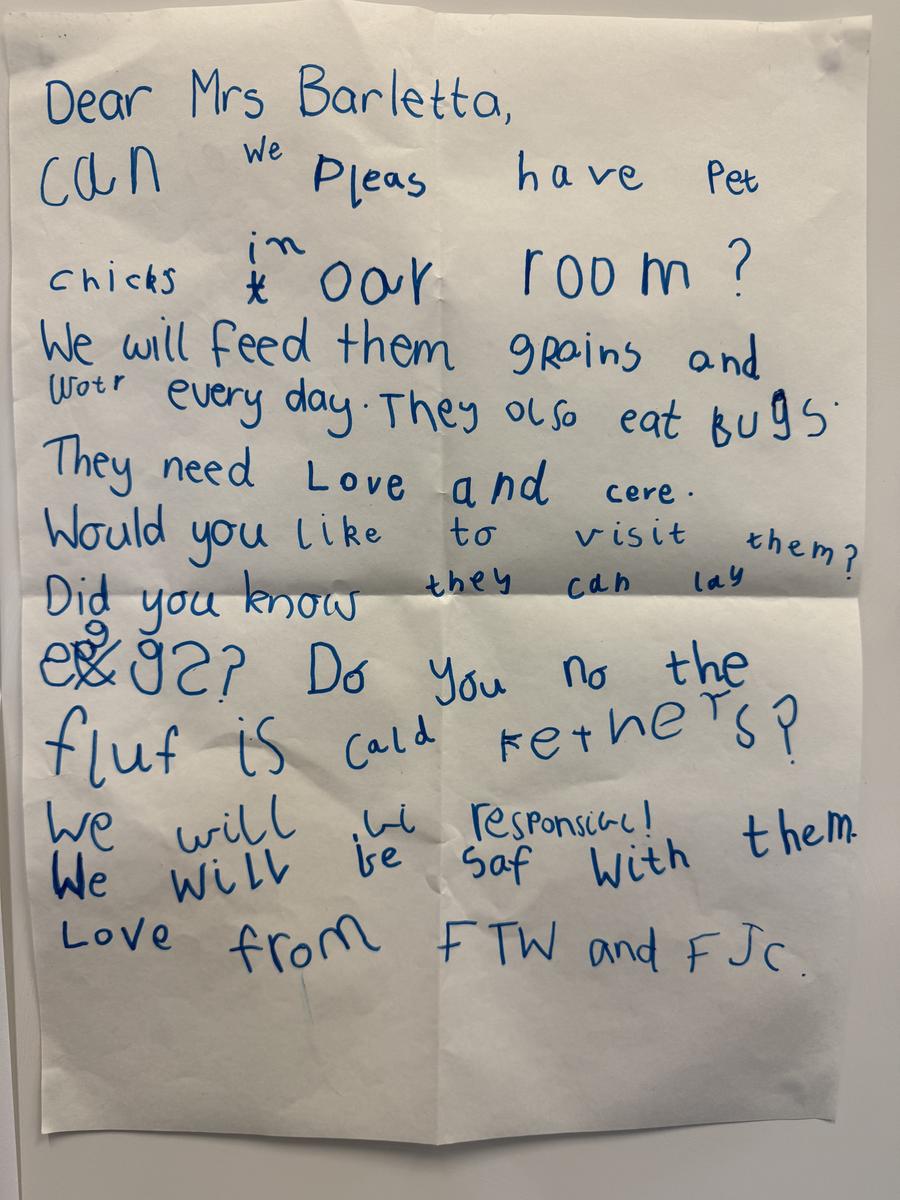 Dear Mrs Barletta,
can we Pleas have Pet
chicks in oar room?
We will feed them grains and
wotr every day. They also eat Bugs.
They need Love and cere.
Would you like to visit them?
Did you know they can lay
eggs? Do you no the
fluf is cald Fethers?
We will bi responsibl!
We will be saf with them.
Love from FTW and FJC.